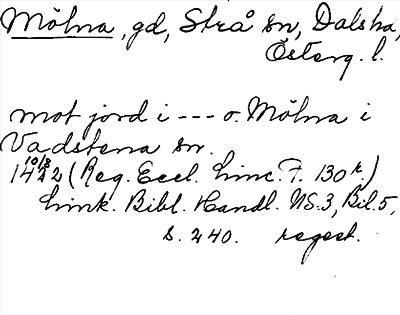 Mölna, gd, Strå sn, Dalshd,
Österg. l.
mot jord i --- o. Mölna i
Vadstena sn.
10/3
1422 (Reg. Eccl. Linc. F. 130r.)
Link. Bibl. Handl. NS. 3, Bil. 5,
s. 240. regest.